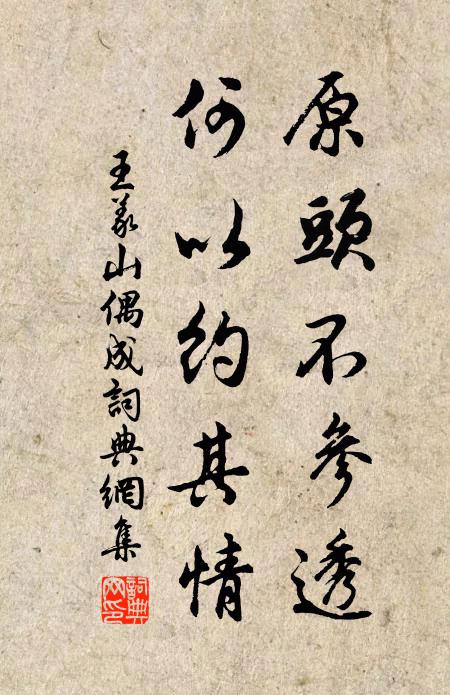 原頭不參透
何以約其情
王義山偶成詞典網集
詞典網印